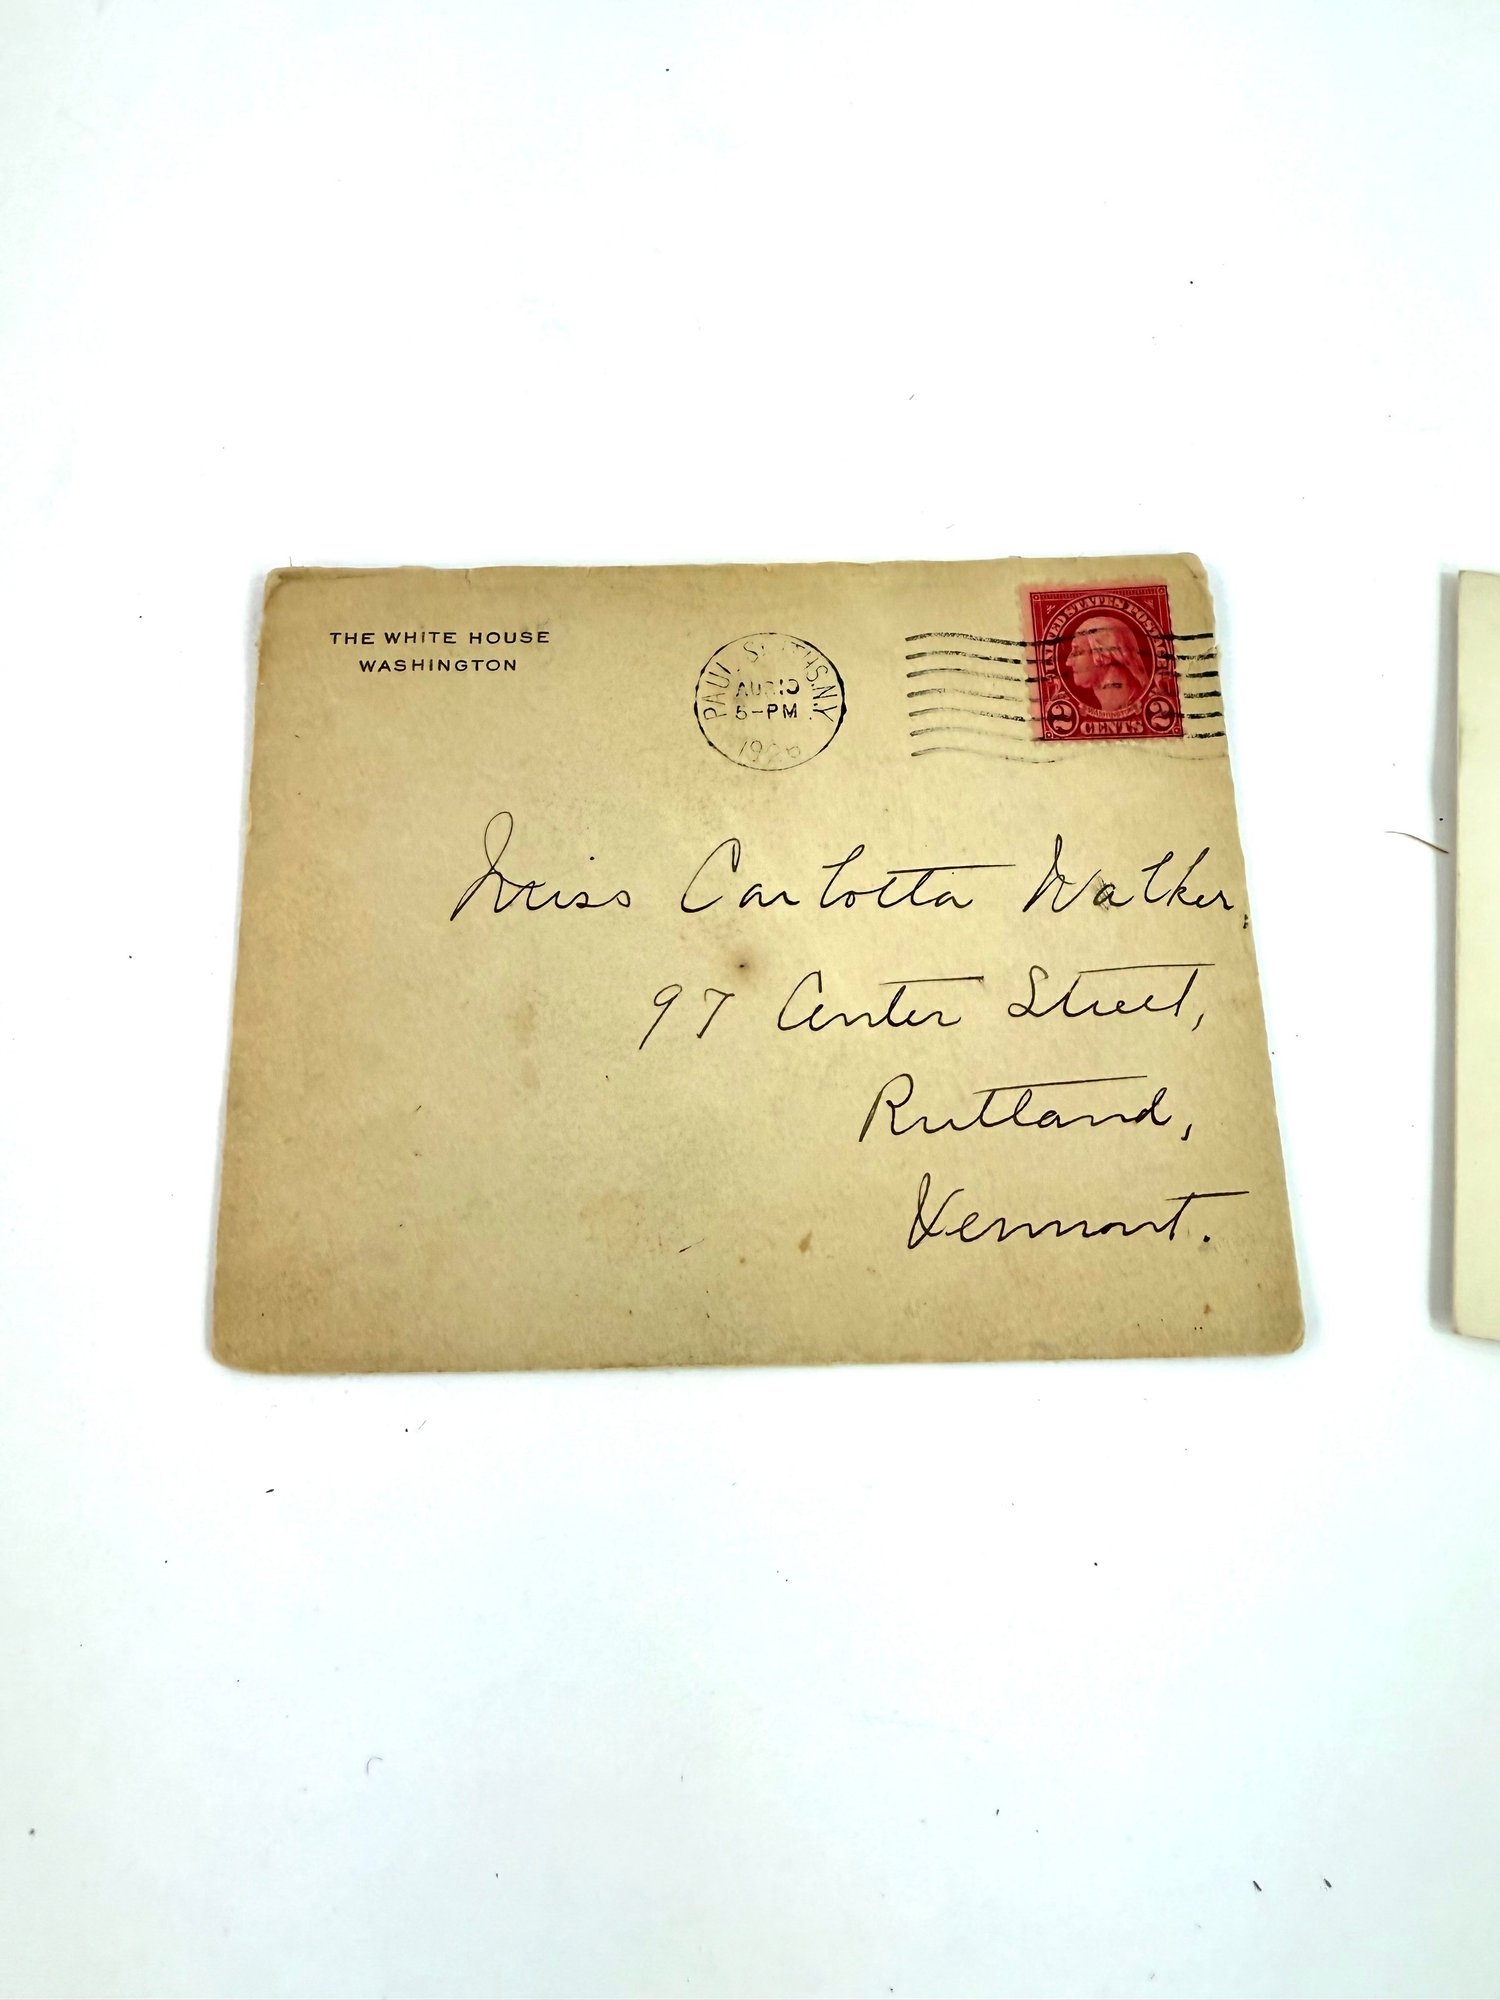 THE WHITE HOUSE
WASHINGTON
PAUL SMITHS. N.Y.
AUG 19
5-PM
1926
UNITED STATES POSTAGE
WASHINGTON
2 CENTS 2
Miss Carlotta Walker,
97 Center Street,
Rutland,
Vermont.